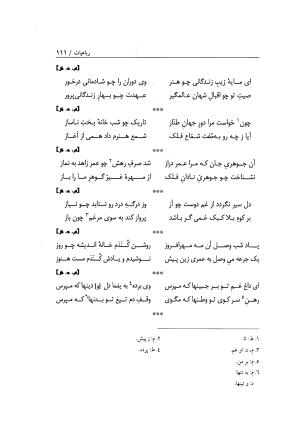 رباعیات / ۱۱۱
[م. م. م]
ای مایهٔ زیب زندگانی چو هنر
وی دوران را چو شادمانی درخور
صیت تو چو اقبال شهان عالمگیر
عهدت چو بهار زندگانی‌پرور
***
[م. م. م]
چون۱ خواست مرا دور جهان طنّاز
تاریک چو شب خانهٔ بخت ناساز
آیا ز چه رو به مفت شمّاع فلک
شمع هنرم داد همی از آغاز
***
[م. م. م]
آن جوهری جان که مرا عمر دراز
شد صرف رهش۲ چو عمر زاهد به نماز
نشناخت چو جوهری نادان فلک
از مهرهٔ غیر گوهر ما را باز
***
[م. م. م]
دل سیر نگردد از غم دوست چو آز
وز درگه درد رو نتابد چو نیاز
بر کوه بلا کبک غمی گر باشد
پرواز کند به سوی مرغم۳ چون باز
***
[م. م. م]
یاد شب وصل آن مه مهرافروز
روشن کُنَدَم خانهٔ اندیشه چو روز
یک جرعه می وصل به عمری زین پیش
نوشیدم و یادش کُنَدَم مست هنوز
***
[م. م. م]
ای داغ غم تو بر جبینها که مپرس
وی برده۴ به یغما دل [و] دینها که مپرس
رهن۵ سر کوی تو وطنها که مگوی
وقف دم تیغ تو بدنها۶ که مپرس
***
۱. ط: تا.
۲. م: ز پیش.
۳. م، د: او غم.
۴. ط: پرده.
۵. م: به تنها.
د: و تینها.